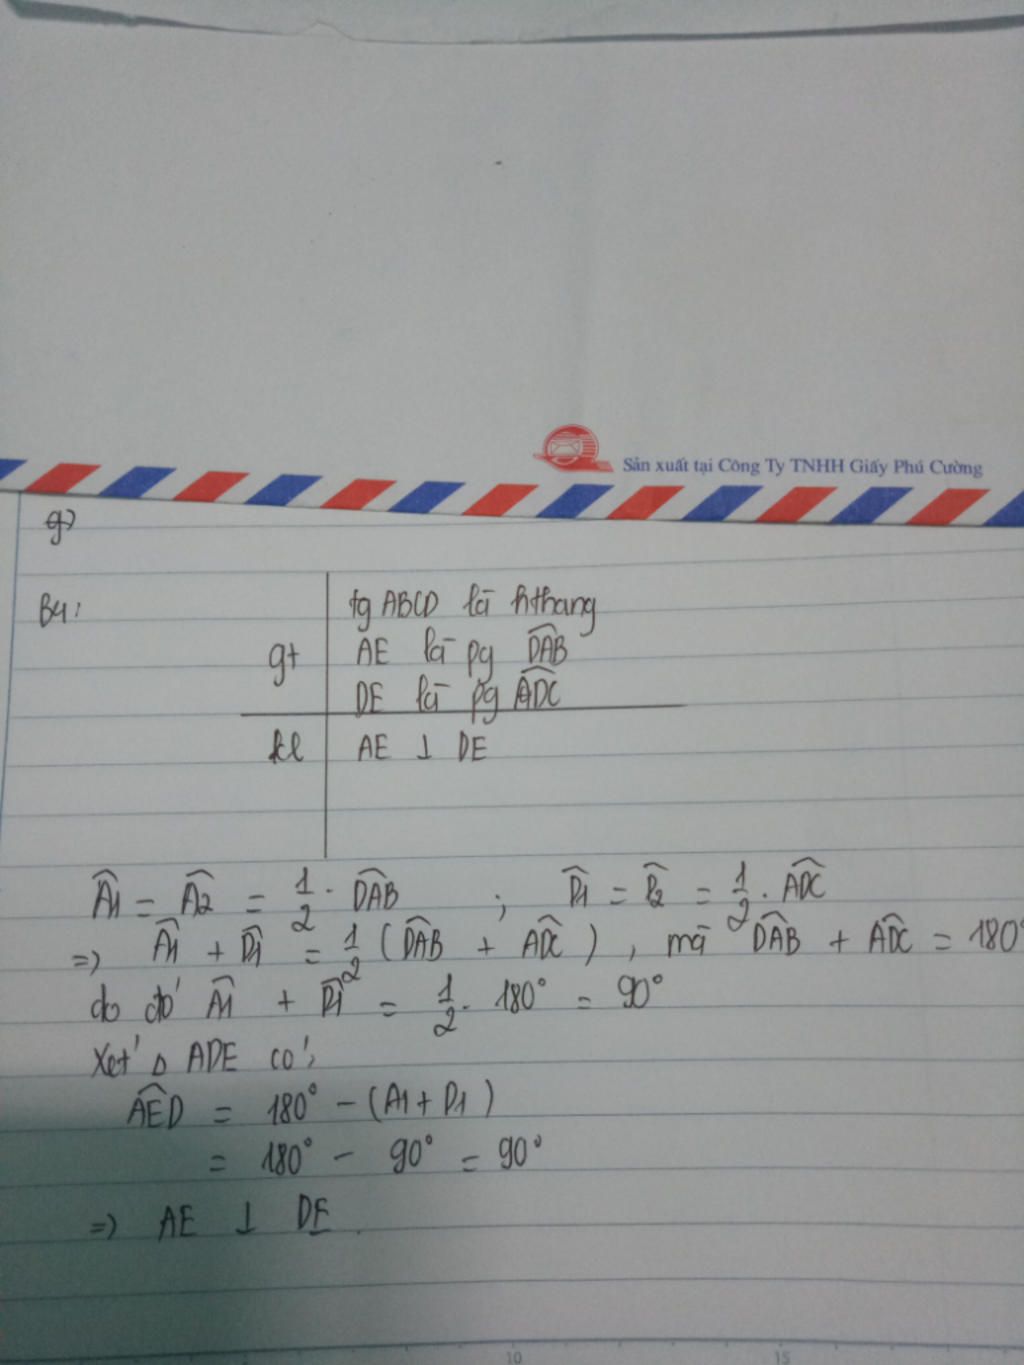 Sản xuất tại Công Ty TNHH Giấy Phú Cường
g)
B4:
tg ABCD là hthang
gt
AE là pg DAB
DE là pg ADC
kl
AE ⊥ DE
A1 = A2 = 1/2 . DAB ; D1 = D2 = 1/2 . ADC
=> A1 + D1 = 1/2 (DAB + ADC) , mà DAB + ADC = 180°
do đó A1 + D1 = 1/2 . 180° = 90°
Xét Δ ADE có:
AED = 180° - (A1 + D1)
= 180° - 90° = 90°
=> AE ⊥ DE.
10 15